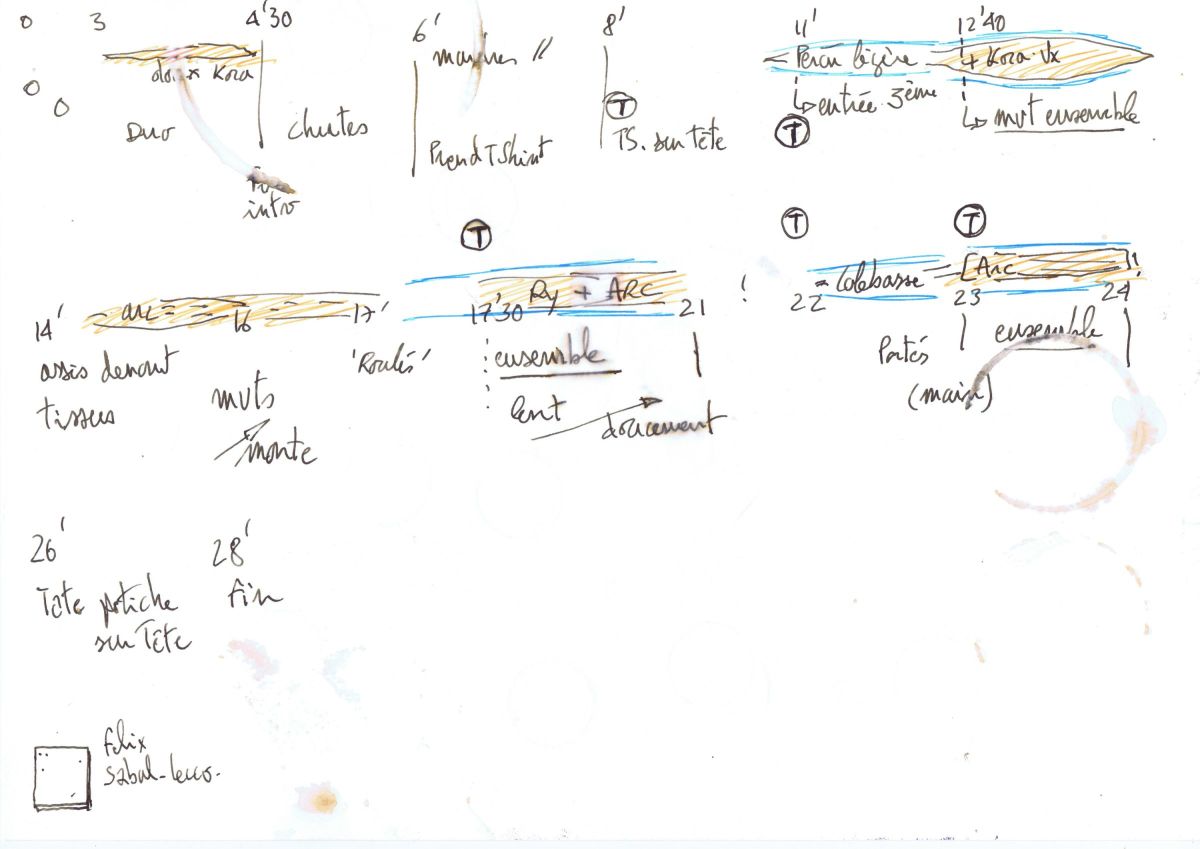 0 3 4'30 6' 8' 11' 12'40
Kora
Duo
chutes
intro
Prend TShirt
T
TS. sur tête
Percu légère + Kora. Vx
entrée 3ème
T
mvt ensemble
T T T
14' arc 16 17'
assis devant
tissus
mvts
monte
'Roulés'
17'30 Ry + ARC 21
ensemble
lent
doucement
!
22 = Calebasse = [Arc]!
23 24
ensemble
Portés
(main)
26' 28'
Tête potiche Fin
sur Tête
Felix
Sabal-Lecco.